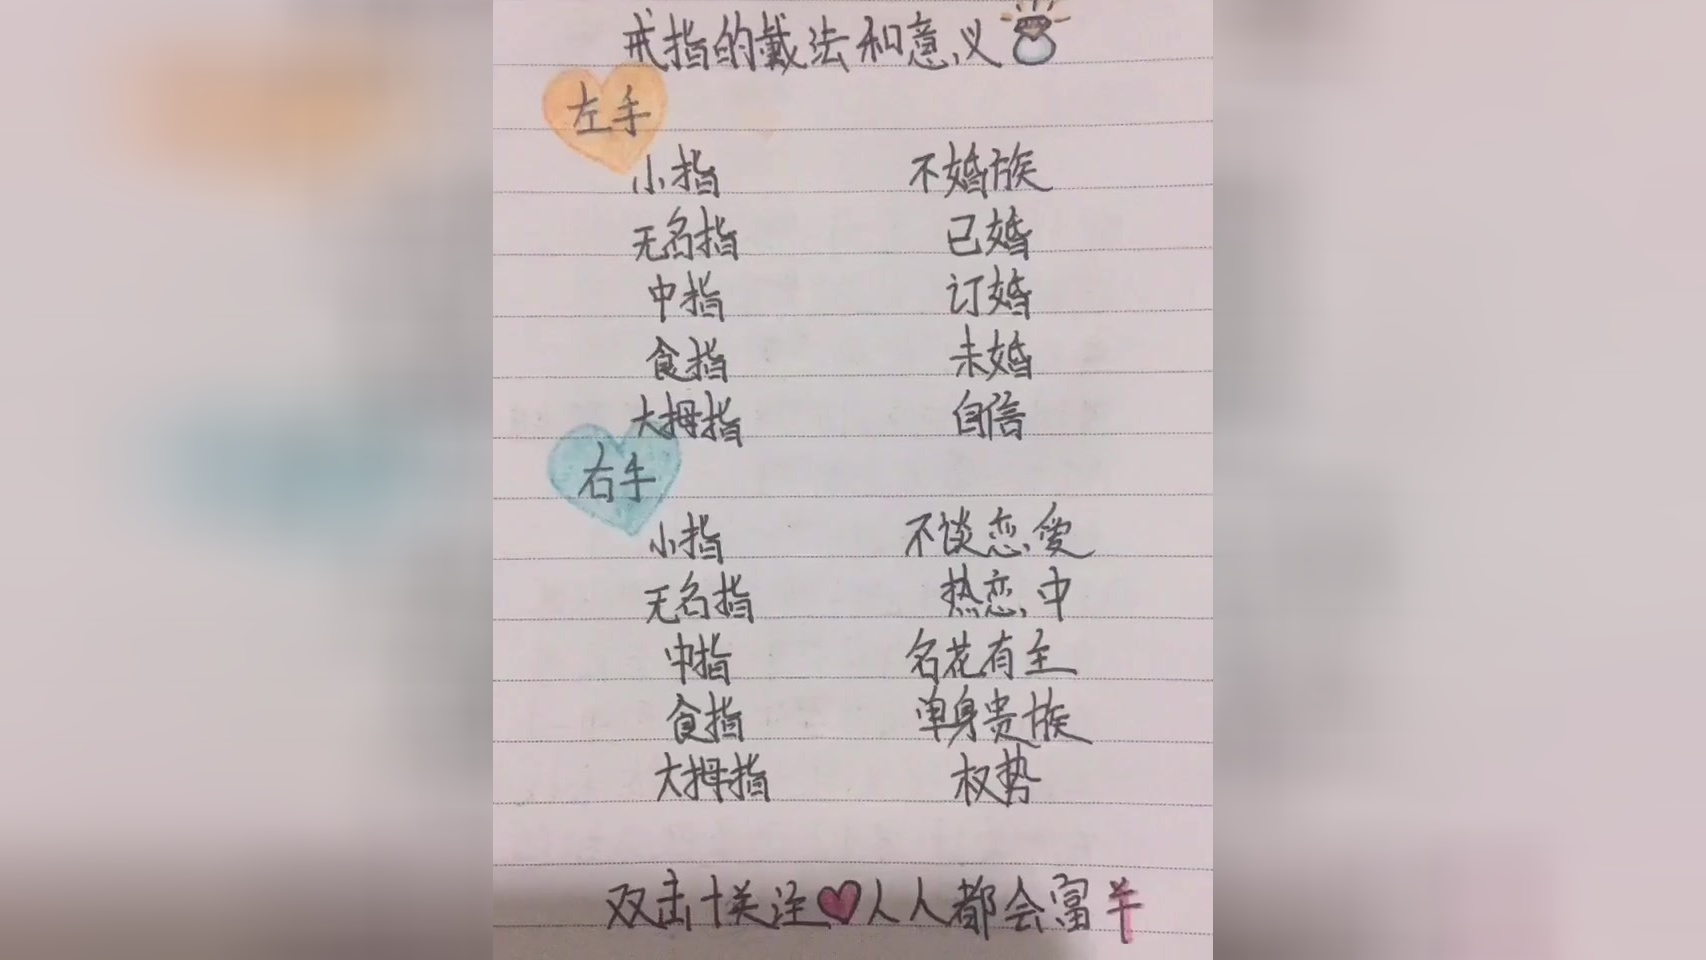 戒指的戴法和意义
左手
小指 不婚族
无名指 已婚
中指 订婚
食指 未婚
大拇指 自信
右手
小指 不谈恋爱
无名指 热恋中
中指 名花有主
食指 单身贵族
大拇指 权势
双击+关注人人都会富羊